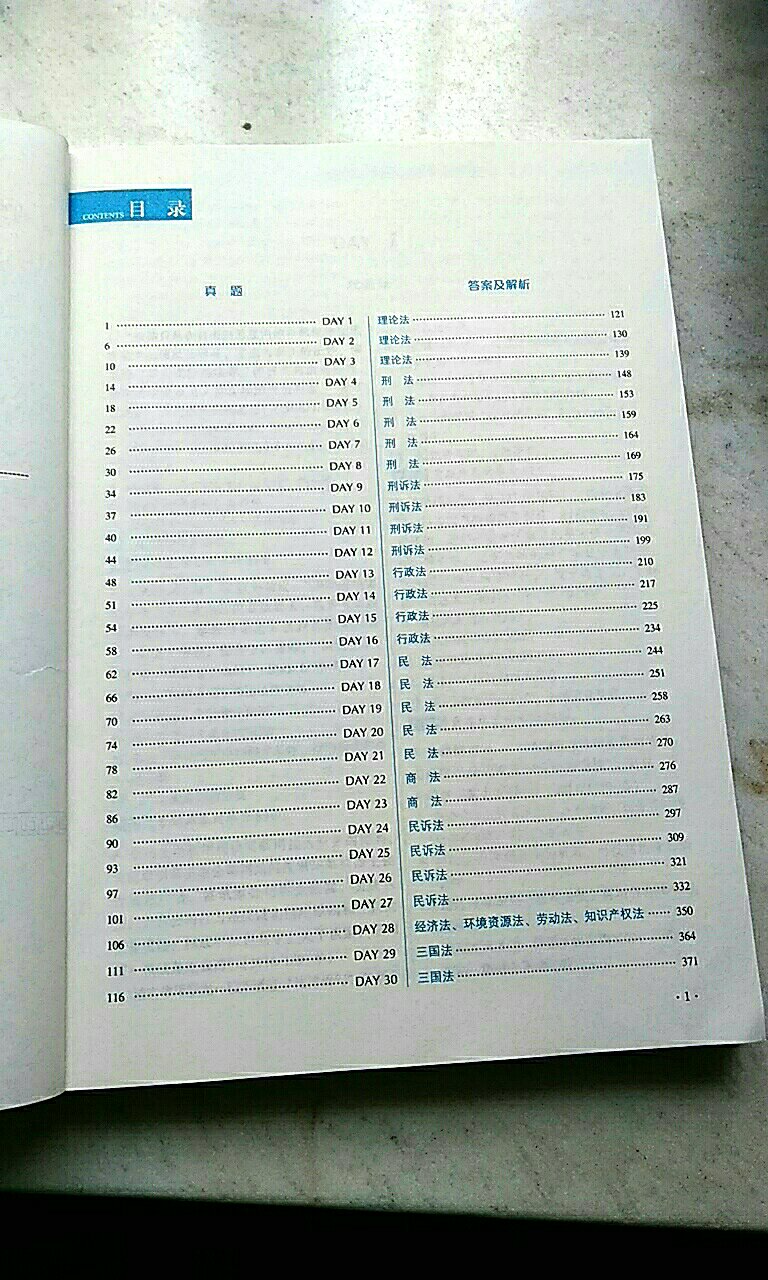 CONTENTS 目 录
真 题 答案及解析
1 DAY 1 理论法 121
6 DAY 2 理论法 130
10 DAY 3 理论法 139
14 DAY 4 刑 法 148
18 DAY 5 刑 法 153
22 DAY 6 刑 法 159
26 DAY 7 刑 法 164
30 DAY 8 刑 法 169
34 DAY 9 刑诉法 175
37 DAY 10 刑诉法 183
40 DAY 11 刑诉法 191
44 DAY 12 刑诉法 199
48 DAY 13 行政法 210
51 DAY 14 行政法 217
54 DAY 15 行政法 225
58 DAY 16 行政法 234
62 DAY 17 民 法 244
66 DAY 18 民 法 251
70 DAY 19 民 法 258
74 DAY 20 民 法 263
78 DAY 21 民 法 270
82 DAY 22 商 法 276
86 DAY 23 商 法 287
90 DAY 24 民诉法 297
93 DAY 25 民诉法 309
97 DAY 26 民诉法 321
101 DAY 27 民诉法 332
106 DAY 28 经济法、环境资源法、劳动法、知识产权法 350
111 DAY 29 三国法 364
116 DAY 30 三国法 371
· 1 ·